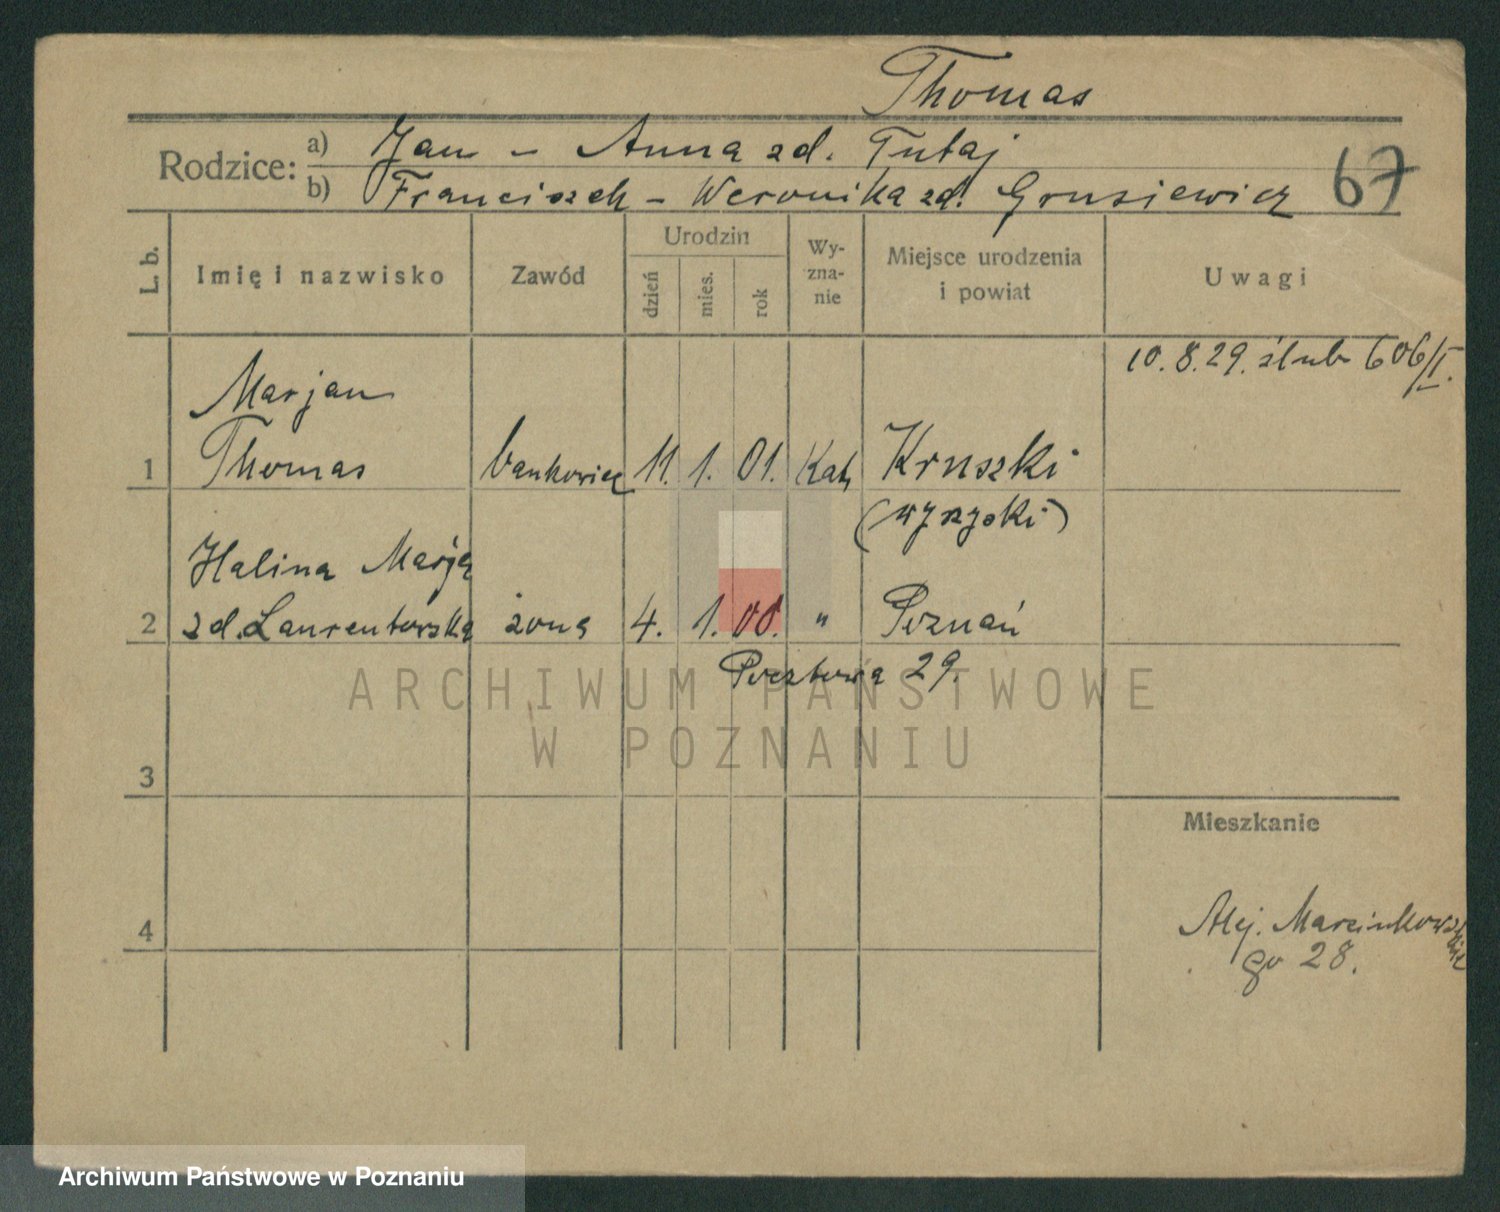 Thomas
Rodzice: a) Jan - Anna zd. Tutaj
b) Franciszek - Weronika zd. Grusiewicz
67
L. b. Imię i nazwisko Zawód Urodzin dzień mies. rok Wy-zna-nie Miejsce urodzenia i powiat Uwagi
10. 8. 29. ślub 606/I.
Marjan
1 Thomas bankowiec 11. 1. 01. Kat. Kruszki
(wyrzyski)
Halina Marja
2 zd. Laurentowska żona 4. 1. 00. " Poznań
Pocztowa 29.
ARCHIWUM PAŃSTWOWE
W POZNANIU
3
Mieszkanie
4
Alej. Marcinkowskie
go 28.
Archiwum Państwowe w Poznaniu